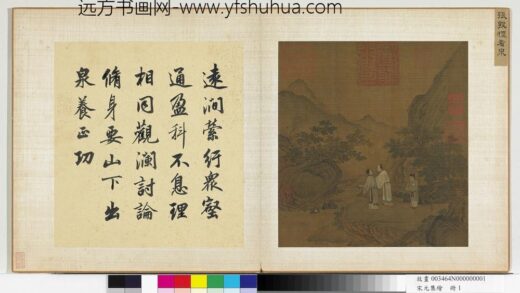 远方书画网-www.yfshuhua.com
遠澗縈行眾壑
通盈科不息理
相同觀瀾討論
脩身要山下出
泉養正功
故畫 003464N000000001
宋元集繪 冊 1